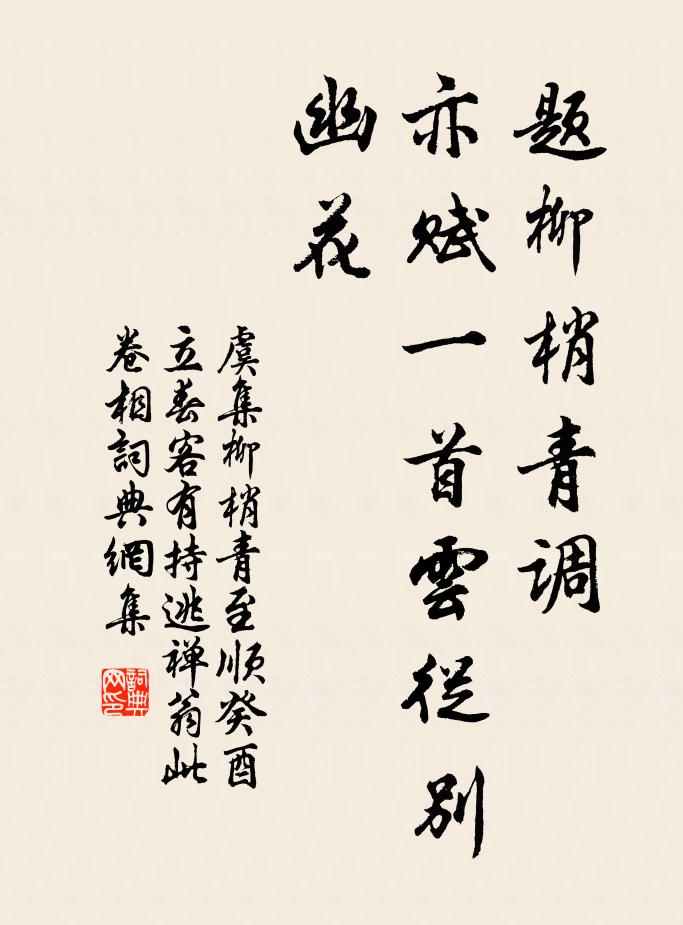 题柳梢青调
亦赋一首雲從别
幽花
虞集柳梢青至顺癸酉
立春客有持逃禅翁此
卷相詞典網集
詞典网印